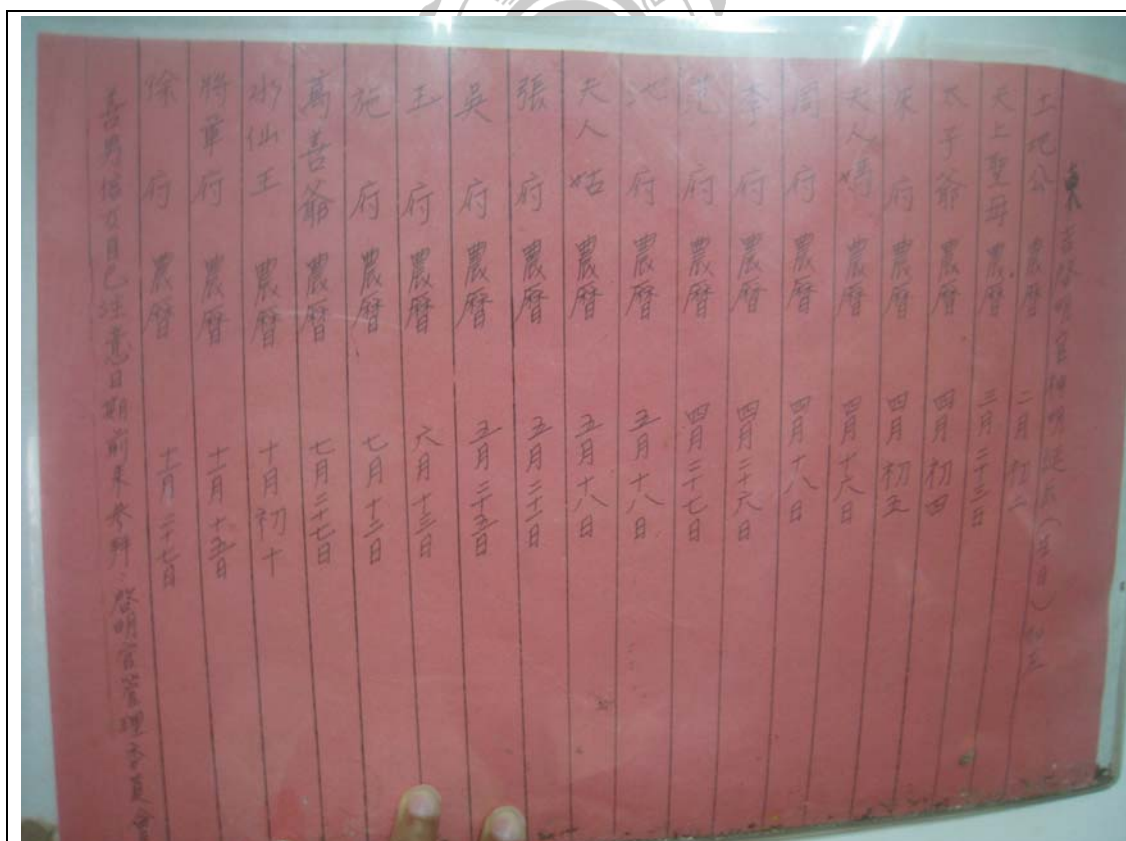 東吉啓明宮神明延辰(生日)如左
土地公 農曆 二月初二
天上聖母 農曆 三月二十三日
太子爺 農曆 四月初四
朱府 農曆 四月初五
夫人媽 農曆 四月十六日
周府 農曆 四月十八日
李府 農曆 四月二十六日
范府 農曆 四月二十七日
池府 農曆 五月十八日
夫人姑 農曆 五月十八日
張府 農曆 五月二十一日
吳府 農曆 五月二十五日
玉府 農曆 六月十三日
施府 農曆 七月十二日
萬善爺 農曆 七月二十七日
水仙王 農曆 十月初十
將軍府 農曆 十一月十五日
徐府 農曆 十一月二十七日
善男信女自己注意日期前來參拜 啓明宮管理委員會